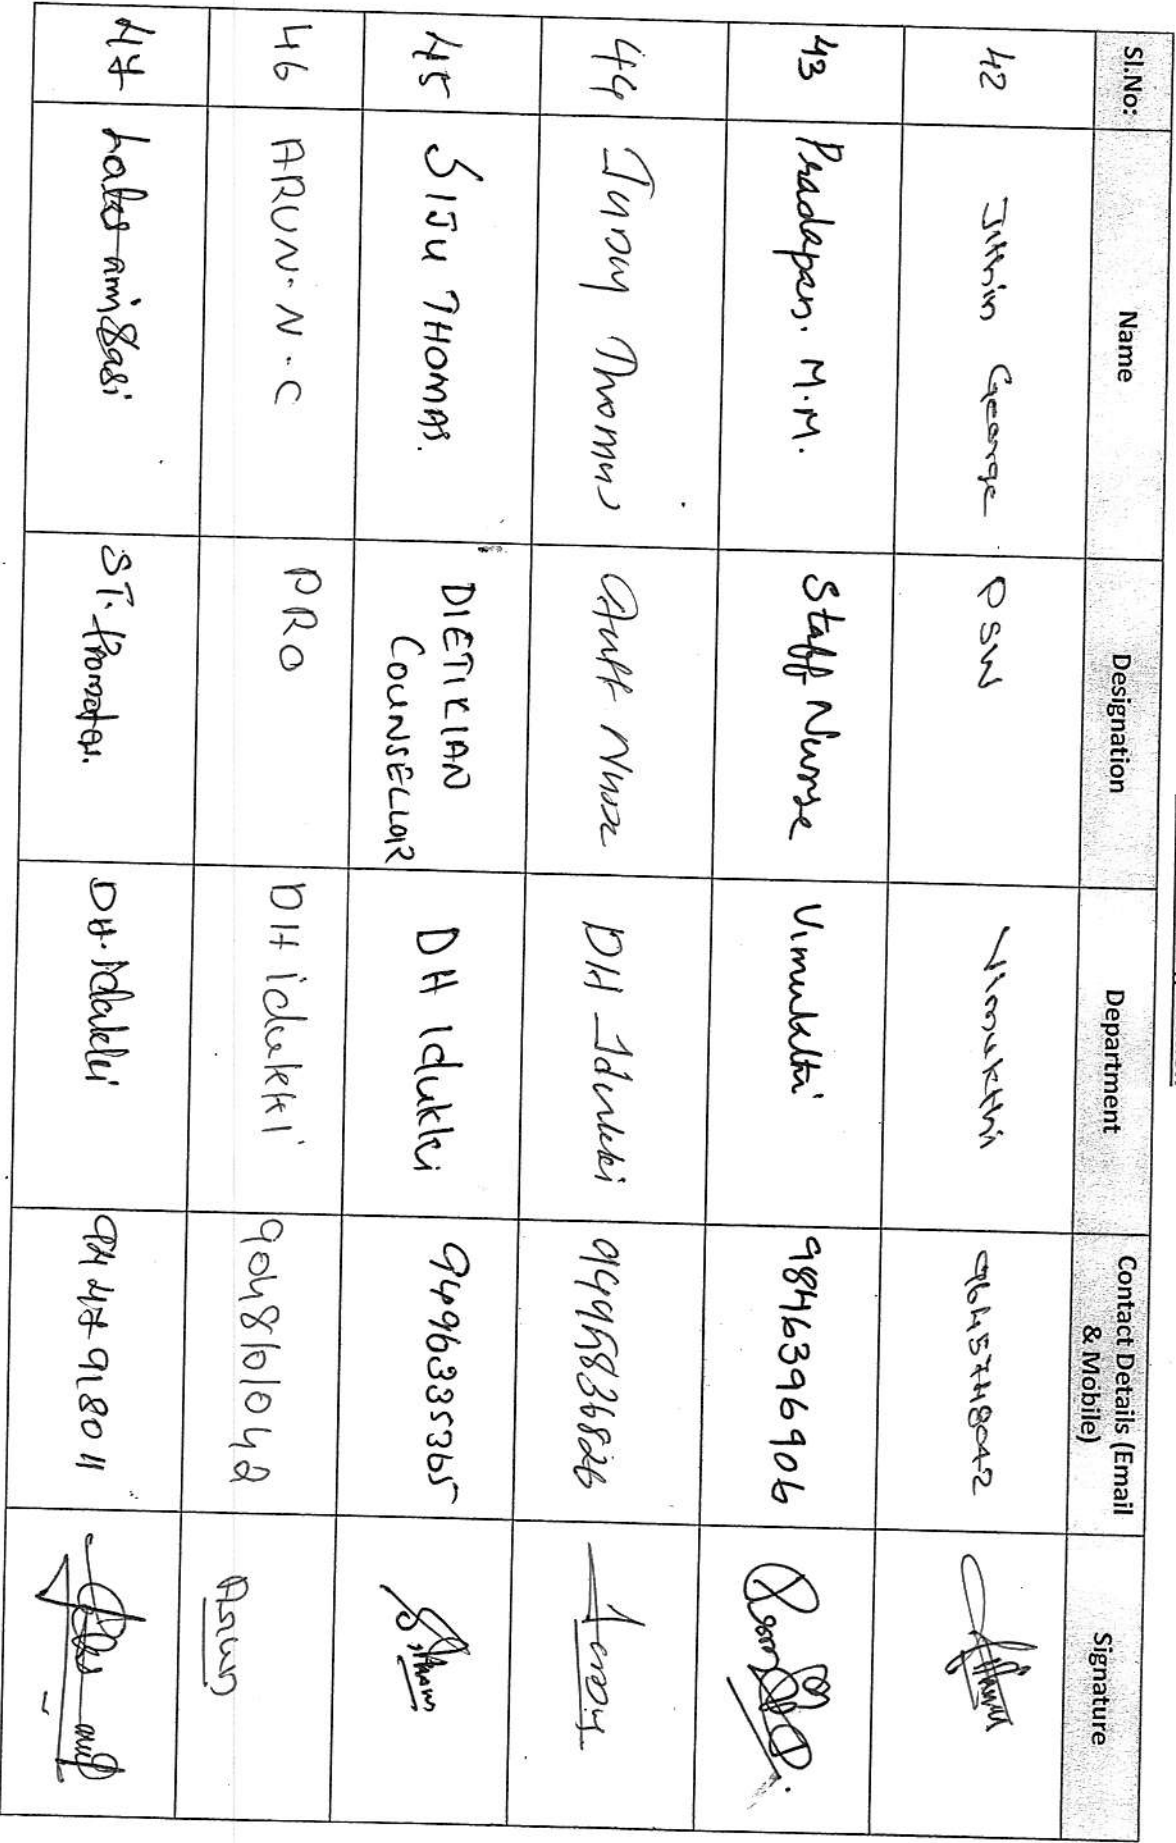 Sl.No: Name Designation Department Contact Details (Email & Mobile) Signature
42 Jithin George PSW Vimukthi 9645748042
43 Pradapan. M.M. Staff Nurse Vimukthi 9846396906
44 Thomas Staff Nurse DH Idukki 9495836826
45 SIJU THOMAS. DIETICIAN COUNSELLOR DH Idukki 9496335365
46 ARUN.N.C PRO DH idukki 9048101042 Arun
47 Sasi ST. Promoter. DH.Idukki 9447918011